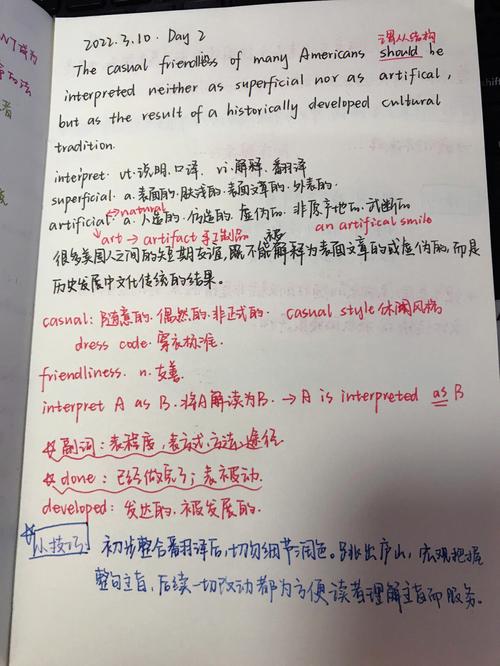 2022.3.10. Day 2
谓从结构
The casual friendliness of many Americans should be
interpreted neither as superficial nor as artifical,
but as the result of a historically developed cultural
tradition.
interpret vt.说明.口译. vi.解释.翻译
superficial. a.表面的.肤浅的.表面文章的.外表的.
→natural
artificial. a.人造的.仿造的.虚伪的.非原产地的.武断的
→art → artifact 手工制品 an artifical smile
很多美国人之间的短期友谊,既不能解释为表面文章的或虚伪的,而是
历史发展中文化传统的结果。
casual: 随意的.偶然的.非正式的. casual style 休闲风格
dress code. 穿衣标准.
friendliness. n.友善.
interpret A as B. 将A解读为B. → A is interpreted as B
副词: 表程度,表方式.方法.途径
done: 已经做完了;表被动.
developed: 发达的.被发展的.
小技巧 初步整合翻译后,切勿细节润色。跳出庐山,宏观把握
整句主旨,后续一切改动都为方便读者理解主旨而服务。